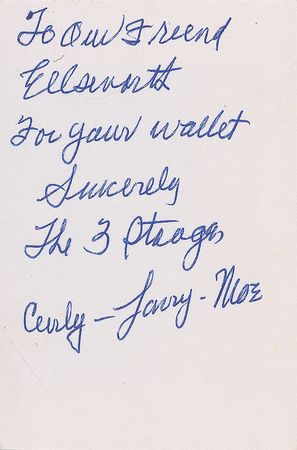 To Our Friend
Ellsworth
For your wallet
Sincerely
The 3 Stooges
Curly - Larry - Moe